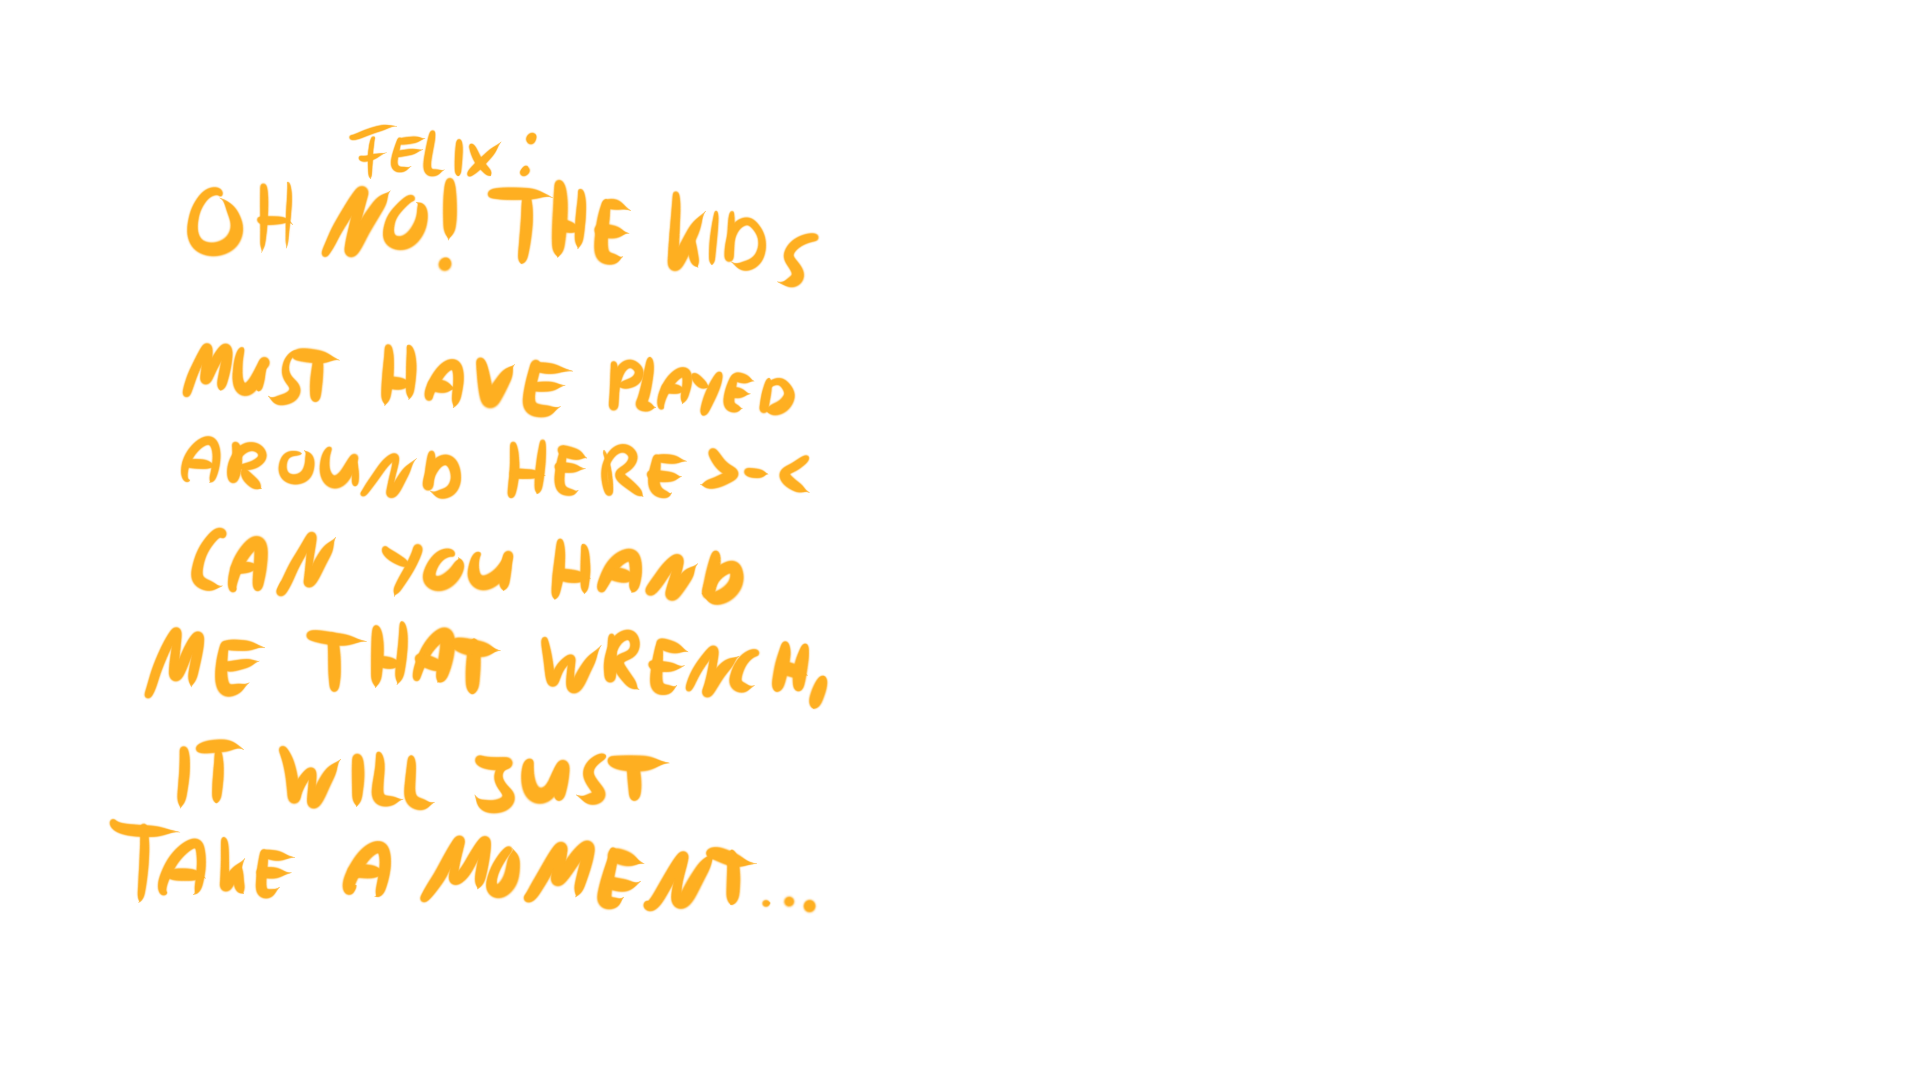 FELIX:
OH NO! THE KIDS
MUST HAVE PLAYED
AROUND HERE >-<
CAN YOU HAND
ME THAT WRENCH,
IT WILL JUST
TAKE A MOMENT...